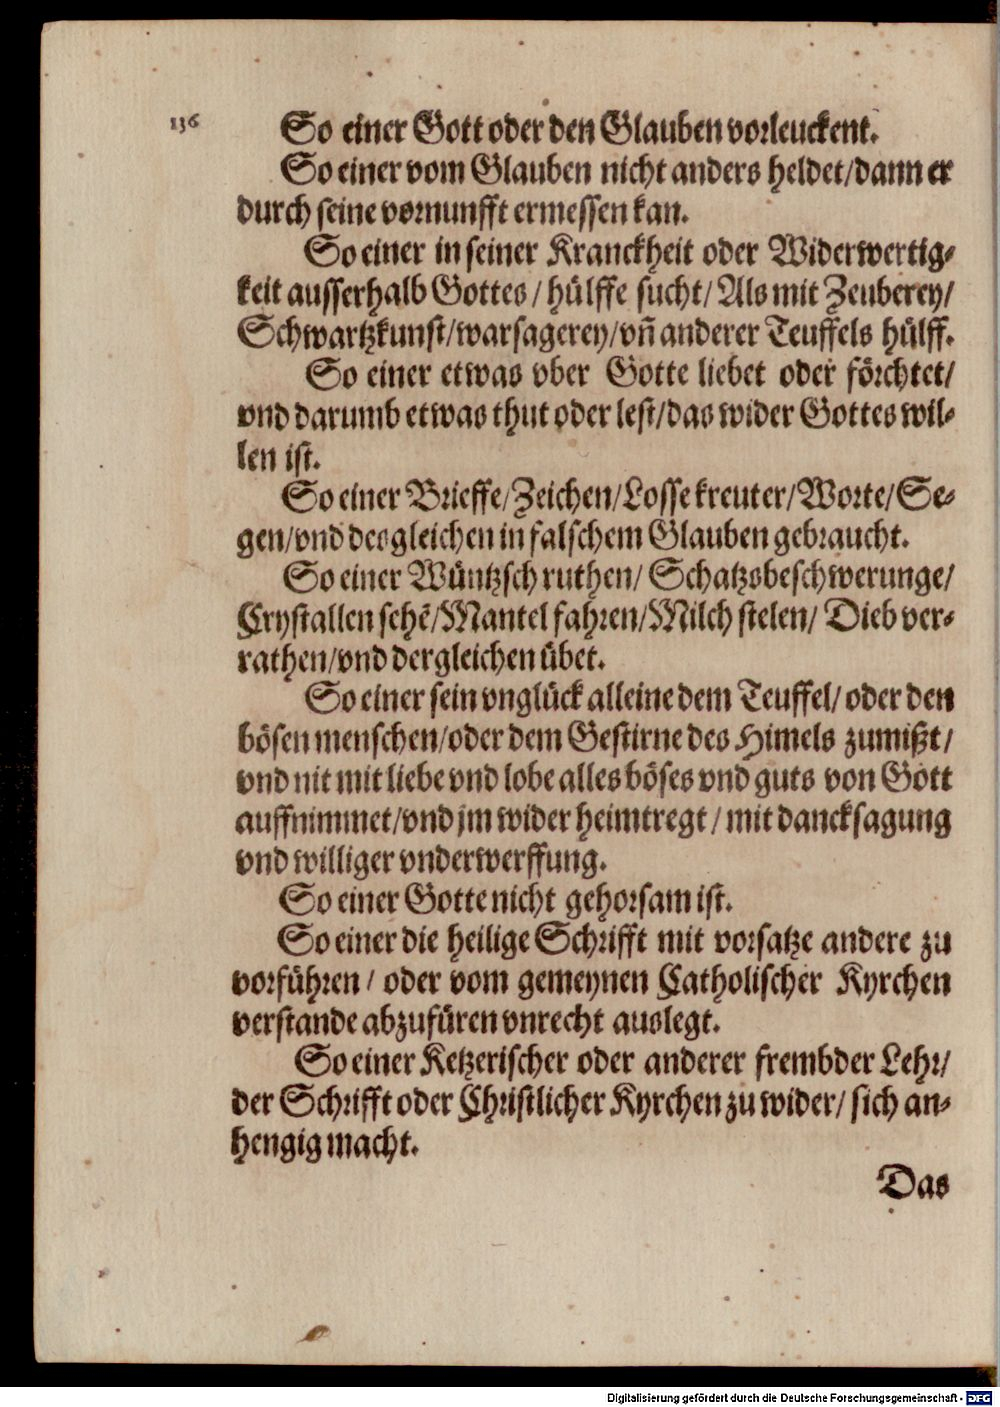 136
So einer Gott oder den Glauben vorleuckent.
So einer vom Glauben nicht anders heldet/dann er
durch seine vornunfft ermessen kan.
So einer in seiner Kranckheit oder Widerwertig-
keit ausserhalb Gottes/ hülffe sucht/ Als mit Zeuberey/
Schwartzkunst/warsagerey/vñ anderer Teuffels hülff.
So einer etwas vber Gotte liebet oder förchtet/
vnd darumb etwas thut oder lest/das wider Gottes wil-
len ist.
So einer Brieffe/Zeichen/Losse kreuter/Worte/Se-
gen/vnd desgleichen in falschem Glauben gebraucht.
So einer Wüntzsch ruthen/ Schatzsbeschwerunge/
Crystallen sehē/Mantel fahren/Milch stelen/ Dieb ver-
rathen/vnd dergleichen übet.
So einer sein vnglück alleine dem Teuffel/ oder den
bösen menschen/oder dem Gestirne des Himels zumißt/
vnd nit mit liebe vnd lobe alles böses vnd guts von Gott
auffnimmet/vnd jm wider heimtregt/ mit dancksagung
vnd williger vnderwerffung.
So einer Gotte nicht gehorsam ist.
So einer die heilige Schrifft mit vorsatze andere zu
vorführen/ oder vom gemeynen Catholischer Kyrchen
verstande abzufüren vnrecht auslegt.
So einer Ketzerischer oder anderer frembder Lehr/
der Schrifft oder Christlicher Kyrchen zu wider/ sich an-
hengig macht.
Das
Digitalisierung gefördert durch die Deutsche Forschungsgemeinschaft - DFG